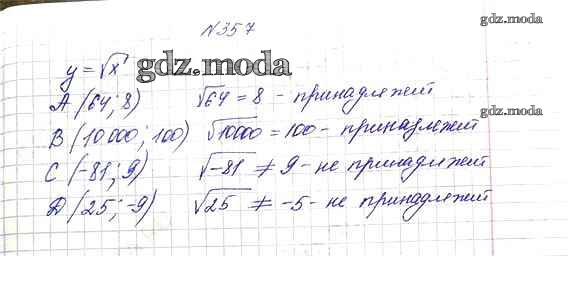 N357
gdz.moda
y = √x gdz.moda
A (64; 8) √64 = 8 - принадлежит
gdz.moda
B (10 000; 100) √10000 = 100 - принадлежит
C (-81; 9) √-81 ≠ 9 - не принадлежит
D (25; -9) √25 ≠ -5 - не принадлежит